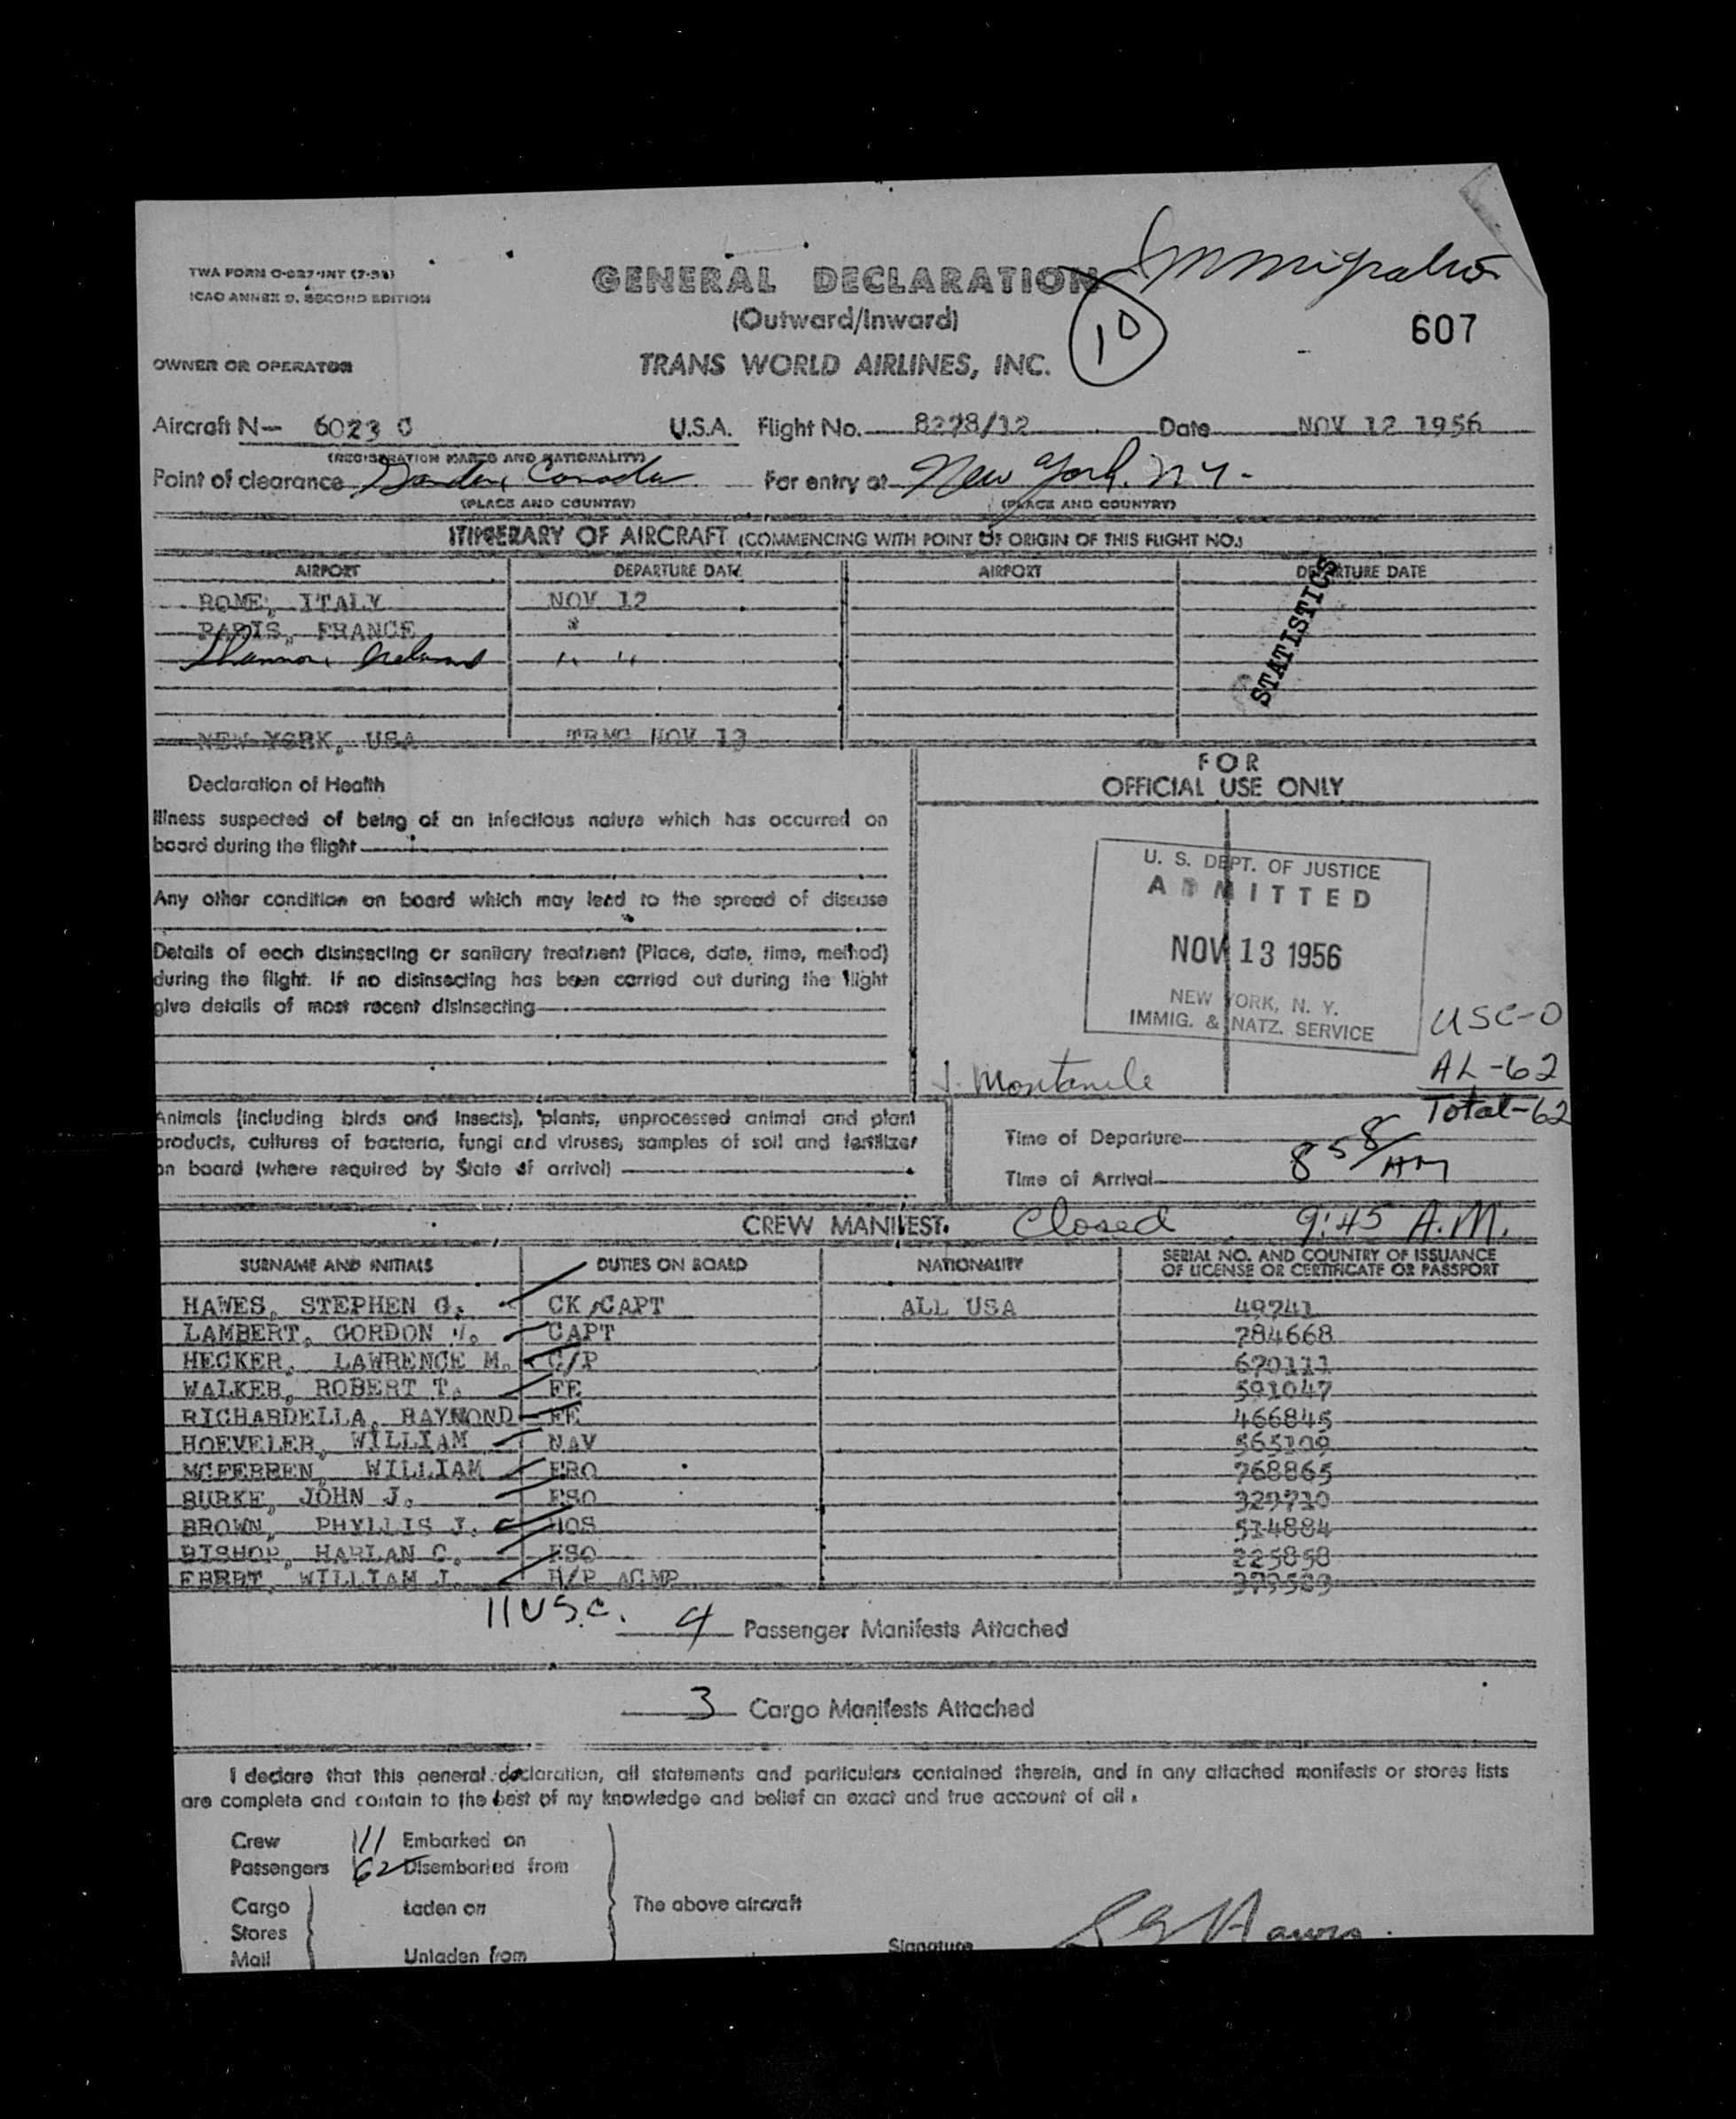 TWA FORM O-027-INT (7-55)
ICAO ANNEX 9, SECOND EDITION
Immigration
GENERAL DECLARATION
(Outward/Inward)
10
607
OWNER OR OPERATOR
TRANS WORLD AIRLINES, INC.
Aircraft N— 6023 C U.S.A. Flight No. 8278/12 Date NOV 12 1956
(REGISTRATION MARKS AND NATIONALITY)
Point of clearance Gander, Canada For entry at New York. N.Y.
(PLACE AND COUNTRY) (PLACE AND COUNTRY)
ITINERARY OF AIRCRAFT (COMMENCING WITH POINT OF ORIGIN OF THIS FLIGHT NO.)
AIRPORT DEPARTURE DATE AIRPORT DEPARTURE DATE
ROME, ITALY NOV 12
PARIS, FRANCE "
Shannon, Ireland " "
STATISTICS
NEW YORK, USA TRMG NOV 13
Declaration of Health
FOR
OFFICIAL USE ONLY
Illness suspected of being of an infectious nature which has occurred on
board during the flight
Any other condition on board which may lead to the spread of disease
Details of each disinsecting or sanitary treatment (Place, date, time, method)
during the flight. If no disinsecting has been carried out during the flight
give details of most recent disinsecting
U. S. DEPT. OF JUSTICE
ADMITTED
NOV 13 1956
NEW YORK, N. Y.
IMMIG. & NATZ. SERVICE
USC-0
AL-62
Total-62
Animals (including birds and insects), plants, unprocessed animal and plant
products, cultures of bacteria, fungi and viruses, samples of soil and fertilizer
on board (where required by State of arrival)
Time of Departure
Time of Arrival 8 58/AM
CREW MANIFEST. Closed 9:45 A.M.
SURNAME AND INITIALS DUTIES ON BOARD NATIONALITY SERIAL NO. AND COUNTRY OF ISSUANCE
OF LICENSE OR CERTIFICATE OR PASSPORT
HAWES, STEPHEN G. CK/CAPT ALL USA 49741
LAMBERT, GORDON CAPT 784668
HECKER, LAWRENCE M. C/P 670111
WALKER, ROBERT T. FE 591047
RICHARDELLA, RAYMOND FE 466845
HOEVELER, WILLIAM NAV 565109
MCFERREN, WILLIAM FRO 768865
BURKE, JOHN J. FSO 329710
BROWN, PHYLLIS J. HOS 514884
BISHOP, HARLAN C. FSO 225858
EBERT, WILLIAM J. H/P ACMP
11 U.S.C. 4 Passenger Manifests Attached
3 Cargo Manifests Attached
I declare that this general declaration, all statements and particulars contained therein, and in any attached manifests or stores lists
are complete and contain to the best of my knowledge and belief an exact and true account of all
Crew 11 Embarked on
Passengers 62 Disembarked from
Cargo Laden on The above aircraft
Stores
Mail Unladen from Signature S G Hawes